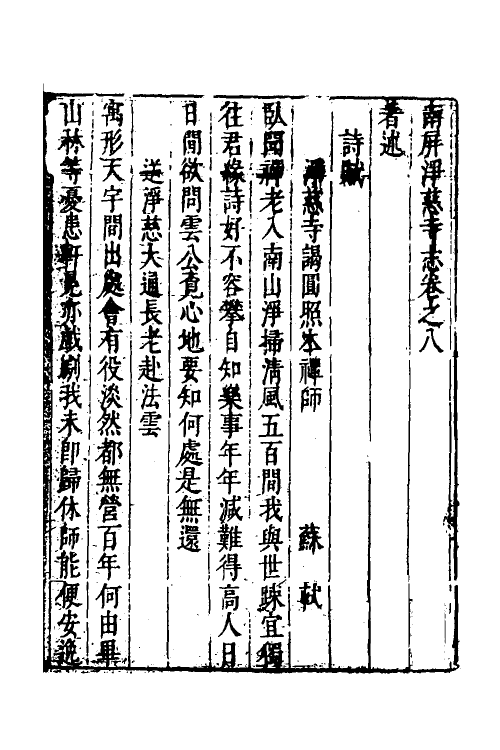 南屏淨慈寺志卷之八
著述
詩賦
淨慈寺謁圓照本禪師　蘇軾
臥聞禪老入南山淨掃清風五百間我與世踈宜獨
往君緣詩好不容攀自知樂事年年減難得高人日
日閒欲問雲公覓心地要知何處是無還
送淨慈大通長老赴法雲
寓形天宇間出處會有役淡然都無營百年何由畢
山林等憂患軒冕亦戲劇我未即歸休師能便安逸